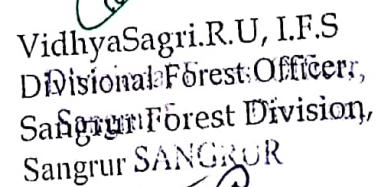 VidhyaSagri.R.U, I.F.S
Divisional Forest Officer,
Sangrur Forest Division,
Sangrur SANGRUR